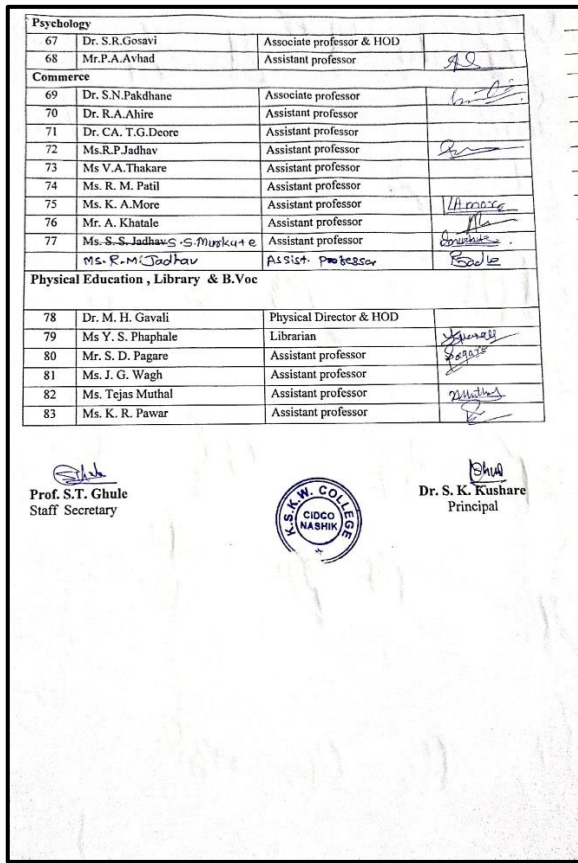 Psychology
67 Dr. S.R.Gosavi Associate professor & HOD
68 Mr.P.A.Avhad Assistant professor
Commerce
69 Dr. S.N.Pakdhane Associate professor
70 Dr. R.A.Ahire Assistant professor
71 Dr. CA. T.G.Deore Assistant professor
72 Ms.R.P.Jadhav Assistant professor
73 Ms V.A.Thakare Assistant professor
74 Ms. R. M. Patil Assistant professor
75 Ms. K. A.More Assistant professor
76 Mr. A. Khatale Assistant professor
77 Ms. S. S. Jadhav S.S.Murkute Assistant professor
Ms. R.M. Jadhav Assist. Professor
Physical Education , Library & B.Voc
78 Dr. M. H. Gavali Physical Director & HOD
79 Ms Y. S. Phaphale Librarian
80 Mr. S. D. Pagare Assistant professor Pagare
81 Ms. J. G. Wagh Assistant professor
82 Ms. Tejas Muthal Assistant professor
83 Ms. K. R. Pawar Assistant professor
Prof. S.T. Ghule
Staff Secretary
K.S.K.W. COLLEGE
CIDCO
NASHIK
Dr. S. K. Kushare
Principal